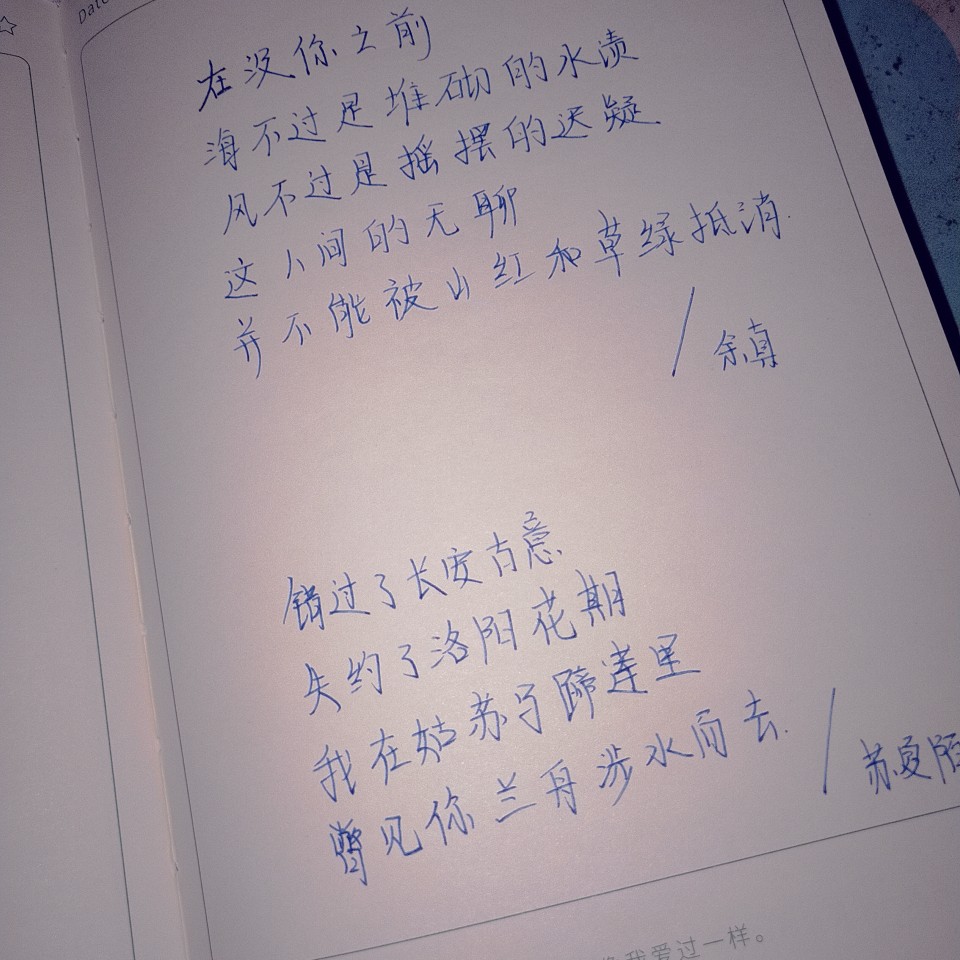 Date
在没你之前
海不过是堆砌的水渍
风不过是摇摆的迟疑.
这人间的无聊
并不能被山红和草绿抵消.
/余真
错过了长安古意.
失约了洛阳花期
我在姑苏马蹄莲里
瞥见你兰舟涉水而去.
/苏夏陌
我爱过一样。